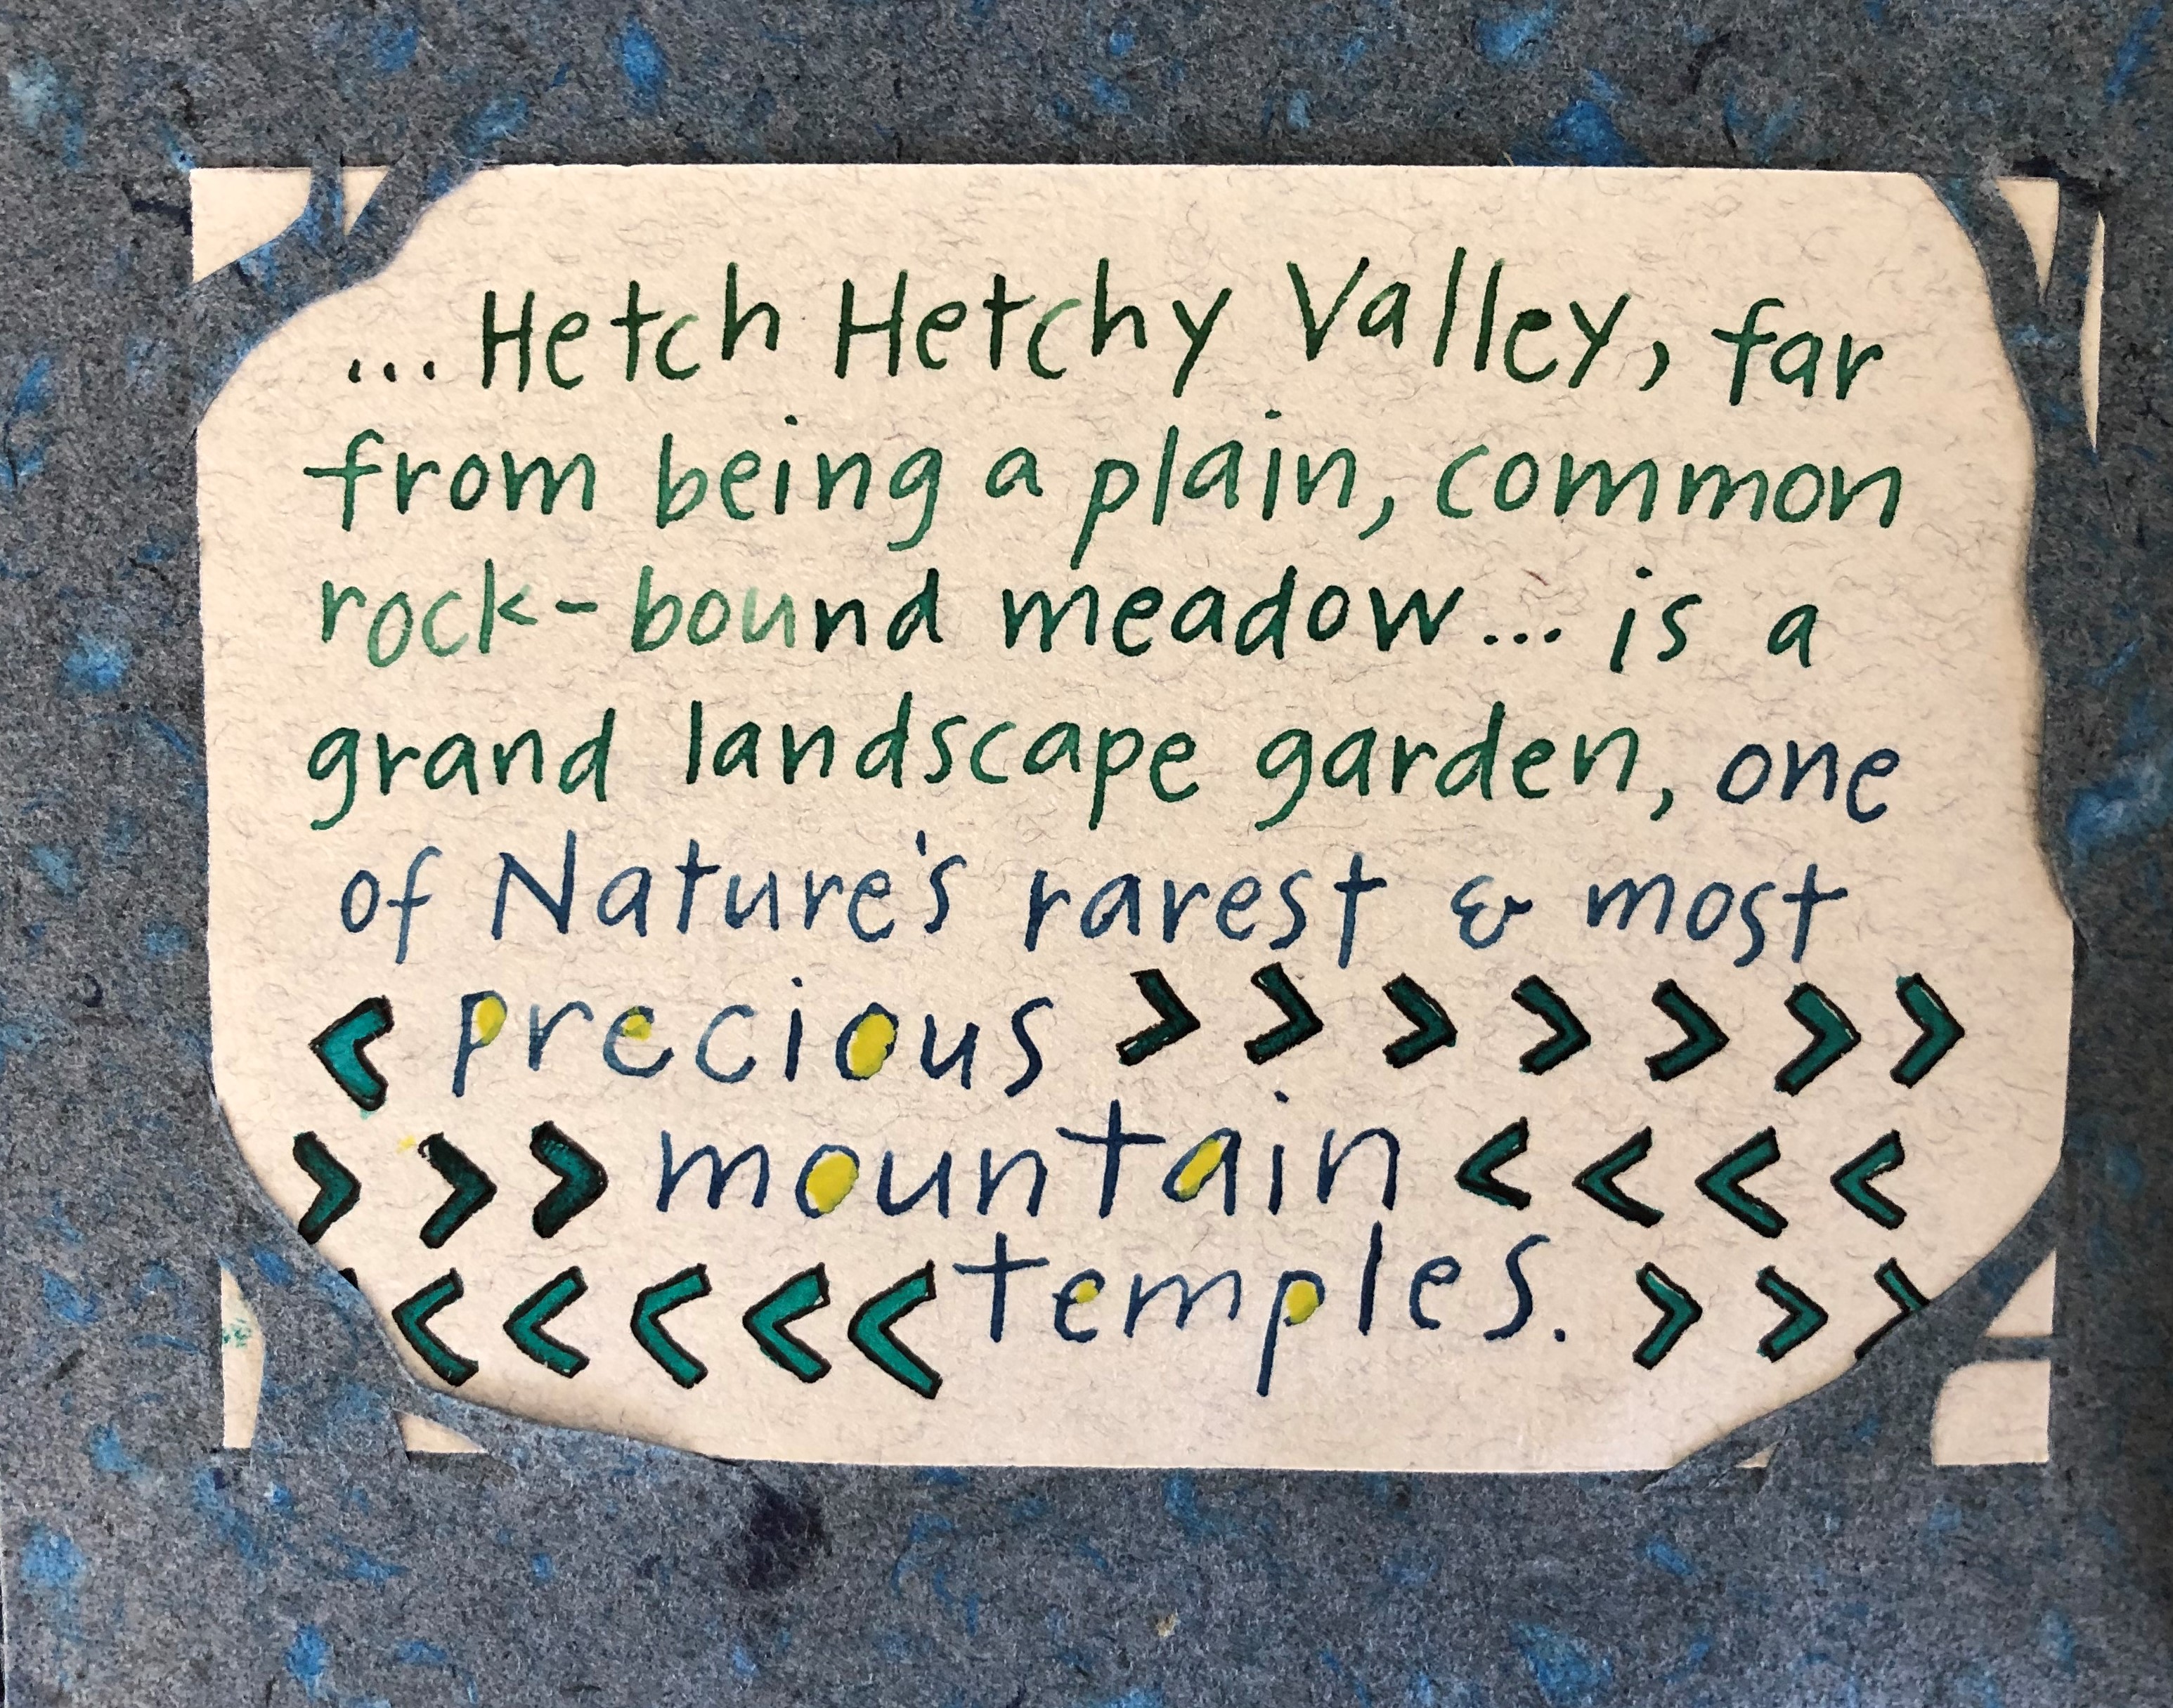 ... Hetch Hetchy Valley, far
from being a plain, common
rock-bound meadow... is a
grand landscape garden, one
of Nature's rarest & most
< precious > > > > > > >
> > > mountain < < < <
< < < < < temples. > > >